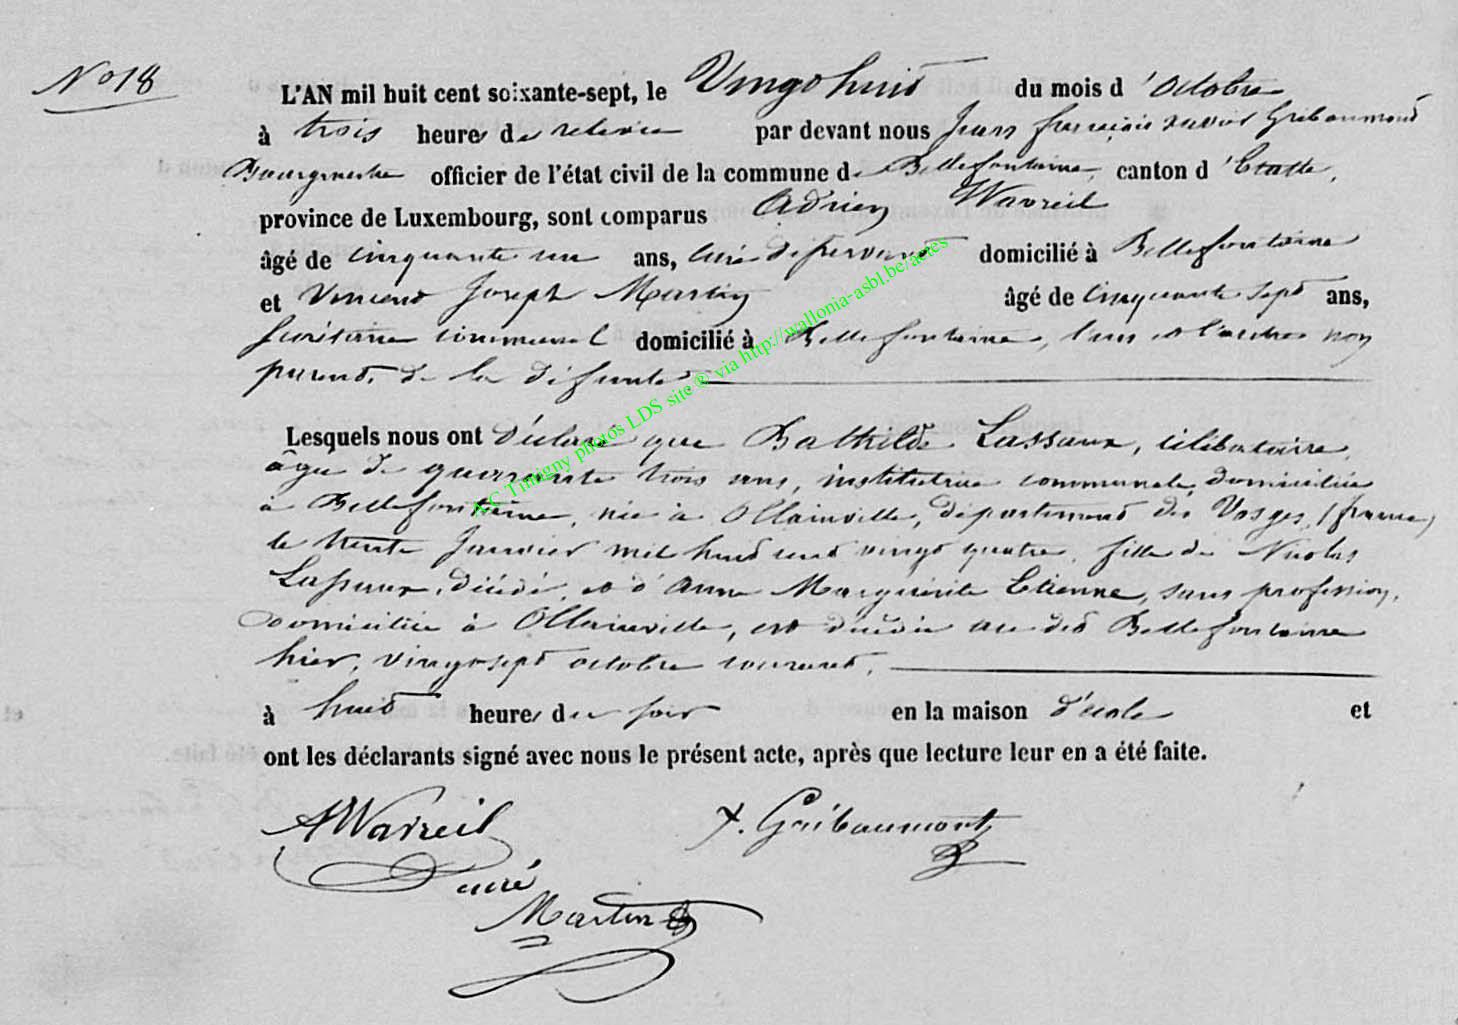 N° 18
L'AN mil huit cent soixante-sept, le Vingt huit du mois d'octobre
à trois heures de relevée par devant nous Jean françois xavier Gribaumont
Bourgmestre officier de l'état civil de la commune de Bellefontaine, canton d'Etalle,
province de Luxembourg, sont comparus Adrien Wavreil
âgé de cinquante un ans, curé desservant domicilié à Bellefontaine
et Vincent Joseph Martin âgé de cinquante sept ans,
secrétaire communal domicilié à Bellefontaine, l'un et l'autre non
parents de la défunte
Lesquels nous ont déclaré que Bathilde Lassaux, célibataire,
âgée de quarante trois ans, institutrice communale, domiciliée
à Bellefontaine, née à Ollainville, département des Vosges, (france)
le trente Janvier mil huit cent vingt quatre, fille de Nicolas
Lassaux, décédé, et d'Anne Marguérite Etienne, sans profession,
domiciliée à Ollainville, est décédée au dit Bellefontaine
hier, vingt sept octobre courant,
à huit heures du soir en la maison d'école et
ont les déclarants signé avec nous le présent acte, après que lecture leur en a été faite.
AWavreil X. Gribaumont
curé
Martin
A.C Tintigny photos LDS site ® via http://wallonia-asbl.be/actes